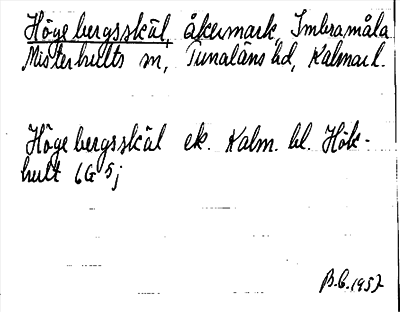 Högebergsskäl, åkermark, Imbramåla
Misterhults sn, Tunaläns hd, Kalmar l.
Högebergsskäl ek. Kalm. bl. Hök-
hult 6G 5j
B.C. 1957